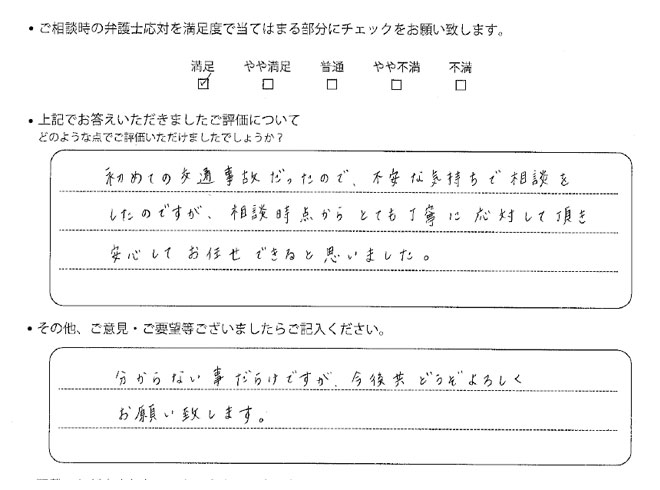 ・ご相談時の弁護士応対を満足度で当てはまる部分にチェックをお願い致します。
満足 やや満足 普通 やや不満 不満
・上記でお答えいただきましたご評価について
どのような点でご評価いただけましたでしょうか？
初めての交通事故だったので、不安な気持ちで相談を
したのですが、相談時点からとても丁寧に応対して頂き
安心してお任せできると思いました。
・その他、ご意見・ご要望等ございましたらご記入ください。
分からない事だらけですが、今後共どうぞよろしく
お願い致します。